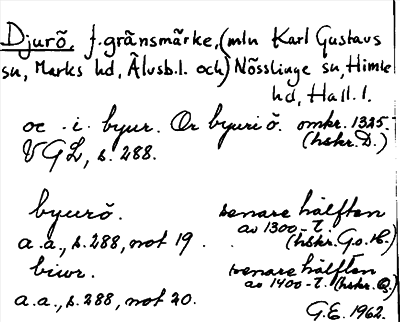 Djurö, f. gränsmärke, (mln Karl Gustavs
sn, Marks hd, Älvsb.l. och) Nösslinge sn, Himle
hd, Hall. l.
oc . i . byur . Or byuri ö. omkr. 1325.
VGL, s. 288. (hskr. D.)
byurö. senare hälften
av 1300-t.
a.a., s. 288, not 19 . (hskr. Go. H.)
biur. senare hälften
av 1400-t. (hskr. Q.)
a.a., s. 288, not 20.
G.E. 1962.